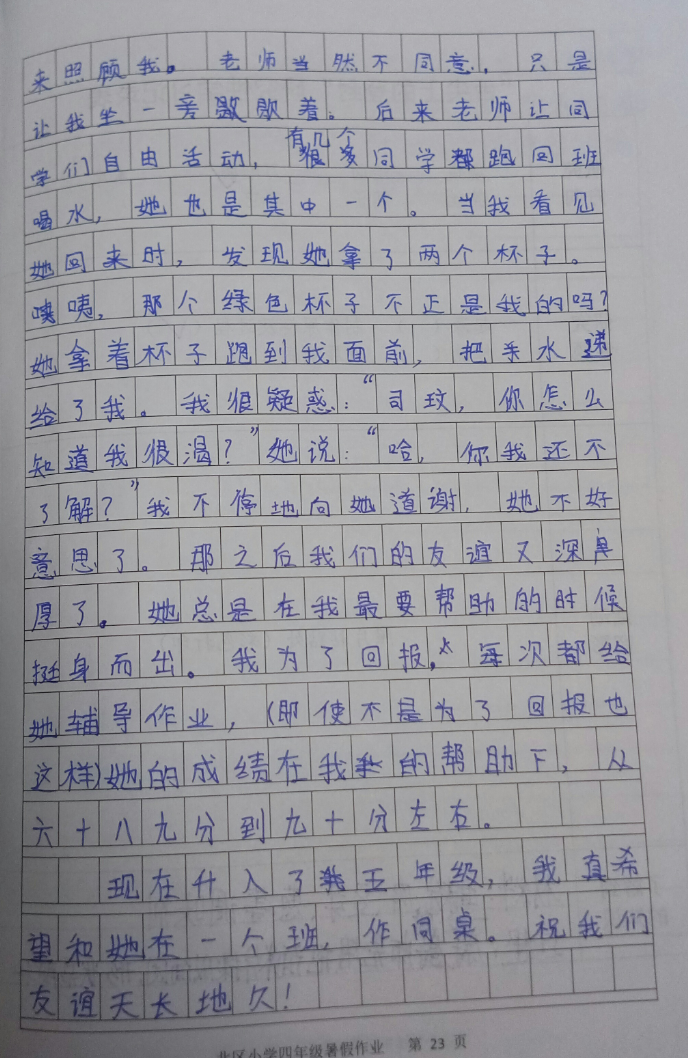 来照顾我。老师当然不同意，只是
让我坐一旁歇歇着。后来老师让同
学们自由活动，有几个同学都跑回班
喝水，她也是其中一个。当我看见
她回来时，发现她拿了两个杯子。
咦咦，那个绿色杯子不正是我的吗？
她拿着杯子跑到我面前，把手水递
给了我。我很疑惑：“司玟，你怎么
知道我很渴？”她说：“哈，你我还不
了解？”我不停地向她道谢，她不好
意思了。那之后我们的友谊又深
厚了。她总是在我最要帮助的时候
挺身而出。我为了回报，每次都给
她辅导作业，（即使不是为了回报也
这样）她的成绩在我的帮助下，从
六十八九分到九十分左右。
现在升入了五年级，我真希
望和她在一个班，作同桌。祝我们
友谊天长地久！
北区小学四年级暑假作业 第 23 页